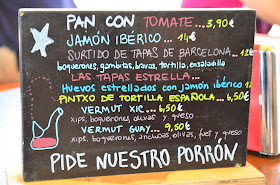 PAN CON TOMATE...3,90€
JAMÓN IBÉRICO... 14€
SURTIDO DE TAPAS DE BARCELONA... 12€
boquerones, gambitas, bravas, tortilla, ensaladilla
LAS TAPAS ESTRELLA...
Huevos estrellados con jamón ibérico 12
PINTXO DE TORTILLA ESPAÑOLA... 6,50€
VERMUT XIC... 6,50€
xips, boquerones, olivas y queso
VERMUT GUAY... 9,50€
xips, boquerones, anchoas, olivas, fuet y queso
PIDE NUESTRO PORRÓN